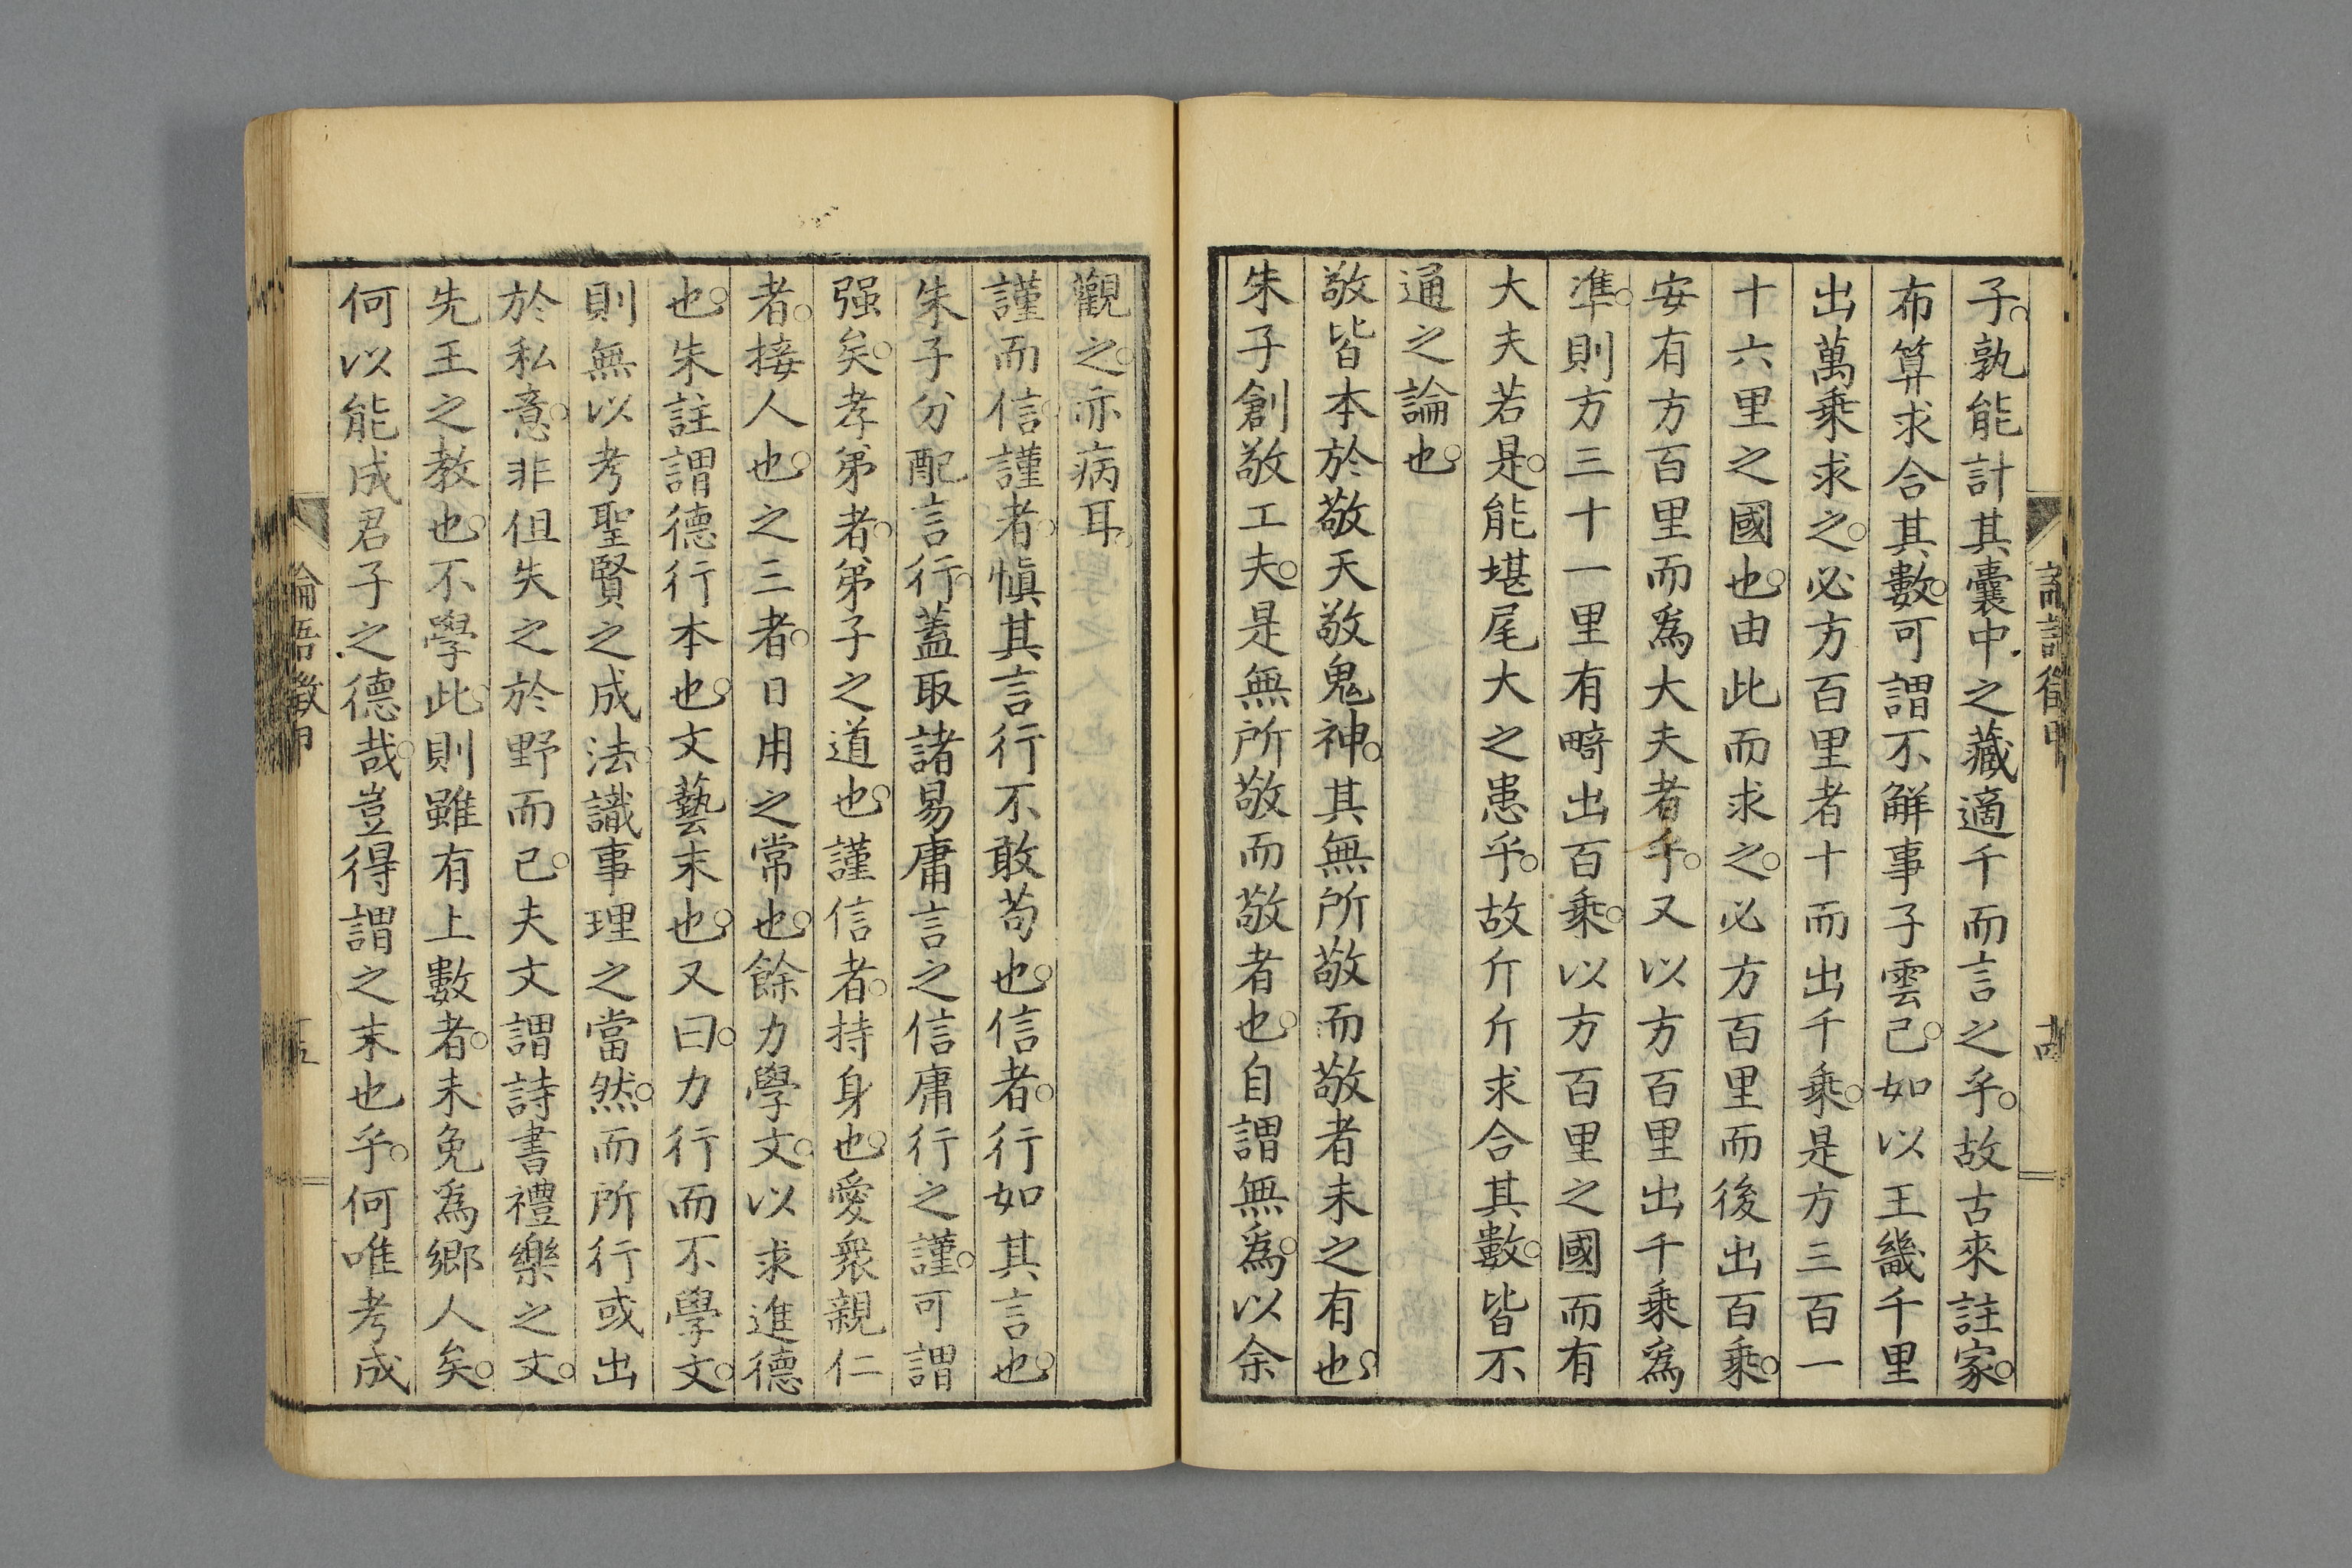 子孰能計其囊中之藏適千而言之乎故古來註家
布算求合其數可謂不解事子雲已如以王畿千里
出萬乘求之必方百里者十而出千乘是方三百一
十六里之國也由此而求之必方百里而後出百乘
安有方百里而爲大夫者乎又以方百里出千乘爲
準則方三十一里有畸出百乘以方百里之國而有
大夫若是能堪尾大之患乎故斤斤求合其數皆不
通之論也
敬皆本於敬天敬鬼神其無所敬而敬者未之有也
朱子創敬工夫是無所敬而敬者也自謂無爲以余
觀之亦病耳
謹而信謹者愼其言行不敢苟也信者行如其言也
朱子分配言行蓋取諸易庸言之信庸行之謹可謂
强矣孝弟者弟子之道也謹信者持身也愛衆親仁
者接人也之三者日用之常也餘力學文以求進德
也朱註謂德行本也文藝末也又曰力行而不學文
則無以考聖賢之成法識事理之當然而所行或出
於私意非但失之於野而已夫文謂詩書禮樂之文
先王之教也不學此則雖有上數者未免爲鄉人矣
何以能成君子之德哉豈得謂之末也乎何唯考成
論語徵甲